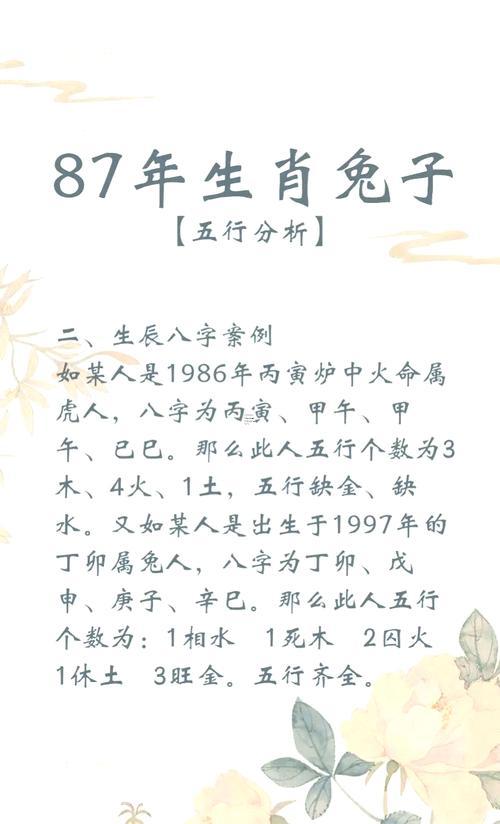 87年生肖兔子
【五行分析】
二、生辰八字案例
如某人是1986年丙寅炉中火命属
虎人，八字为丙寅、甲午、甲
午、已巳。那么此人五行个数为3
木、4火、1土，五行缺金、缺
水。又如某人是出生于1997年的
丁卯属兔人，八字为丁卯、戊
申、庚子、辛巳。那么此人五行
个数为：1相水 1死木 2囚火
1休土 3旺金。五行齐全。